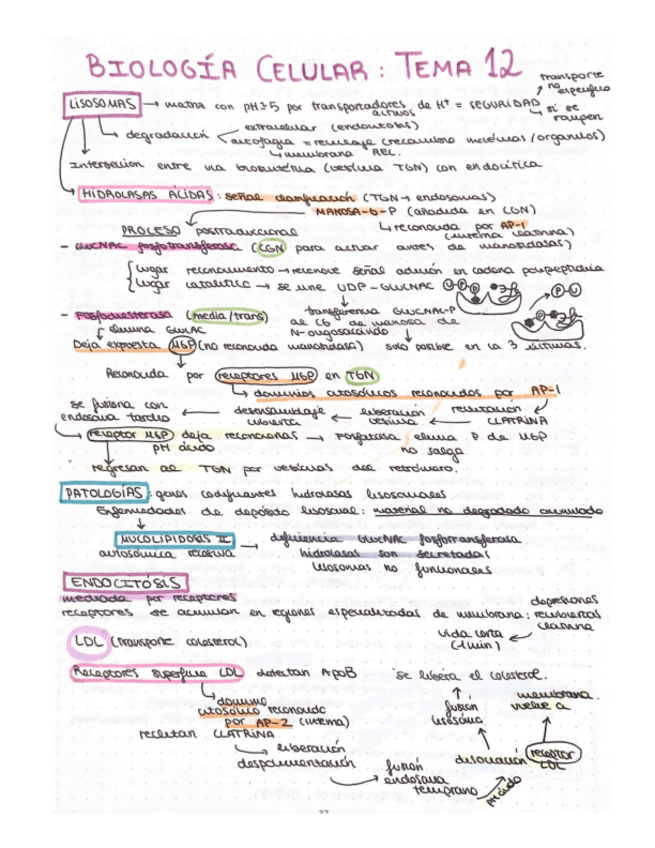 BIOLOGÍA CELULAR: TEMA 12
LISOSOMAS → matriz con pH≥5 por transportadores de H+ = SEGURIDAD
activos
transporte no específico
si se rompen
degradación
extracelular (endocitosis)
autofagia = reciclaje (recambio moléculas/organulos)
membrana REL.
Intersección entre vía biosintética (vesícula TGN) con endocítica
HIDROLASAS ÁCIDAS: señal clasificación (TGN → endosomas)
MANOSA-6-P (añadida en CGN)
PROCESO postraduccional
reconocida por AP-1
(interna clatrina)
- GlcNAC fosfotransferasa (CGN para actuar antes de manosidasas)
lugar reconocimiento → reconoce señal adición en cadena polipeptídica
lugar catalítico → se une UDP-GlucNAC
transferencia GlucNAC-P
al C6 de manosa de
N-oligosacárido
- Fosfodiesterasa (media/trans)
elimina GlucAC
Deja expuesta M6P (no reconocida manosidasa)
solo posible en la 3 últimas.
Reconocida por receptores M6P en TGN
dominios citosólicos reconocidos por AP-1
se fusiona con endosoma tardío ← desensamblaje cubierta ← liberación vesícula ← reclutación CLATRINA
receptor M6P deja reconocerlas → Fosfatasa elimina P de M6P
pH ácido
no salga
regresan al TGN por vesículas del retrómero.
PATOLOGÍAS: genes codificantes hidrolasas lisosomales
Enfermedades de depósito lisosomal: material no degradado acumulado
MUCOLIPIDOSIS II → deficiencia GlucNAC fosfotransferasa
autosómica recesiva
hidrolasas son secretadas
lisosomas no funcionales
ENDOCITÓSIS
mediada por receptores
receptores se acumulan en regiones especializadas de membrana: depresiones recubiertas clatrina
vida corta
(1min)
LDL (transporte colesterol)
Receptores superficie LDL detectan ApoB
se libera el colesterol.
dominio
citosólico reconocido
por AP-2 (interna)
reclutan CLATRINA
liberación
despolimerización
fusión
endosoma
temprano
pH ácido
disociación
fusión
lisosoma
receptor
LDL
vuelve a
membrana.